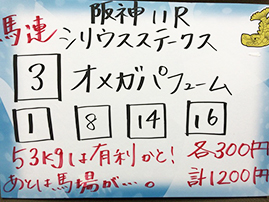 阪神11R
馬連 シリウスステークス
3 オメガパフューム
1 8 14 16
53kgは有利かと! 各300円
あとは馬場が…。 計1200円